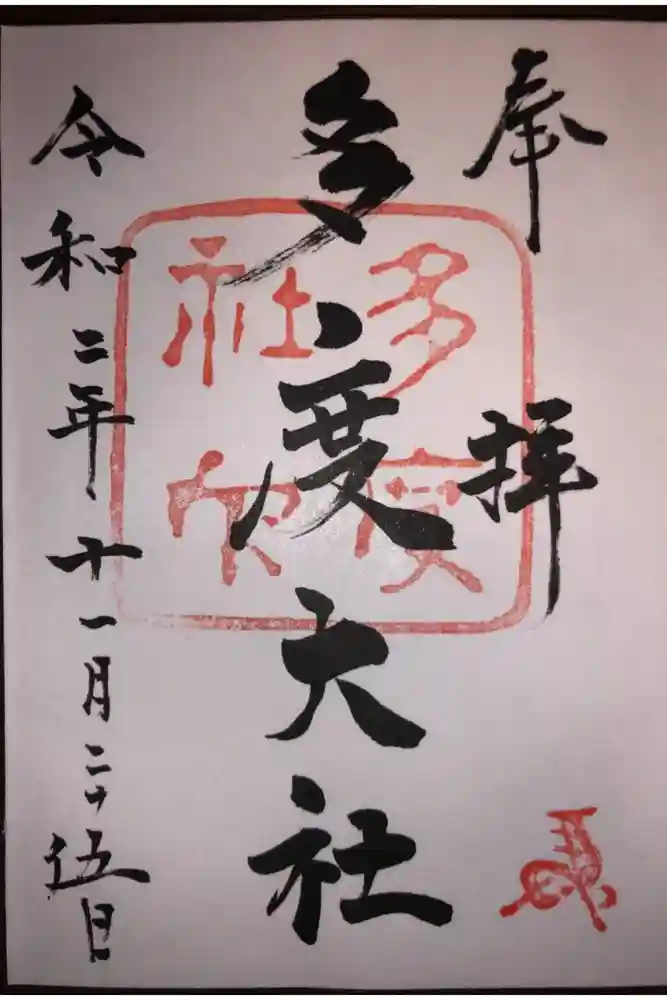 奉拝
多度大社
令和二年十一月二十伍日
多度
社印